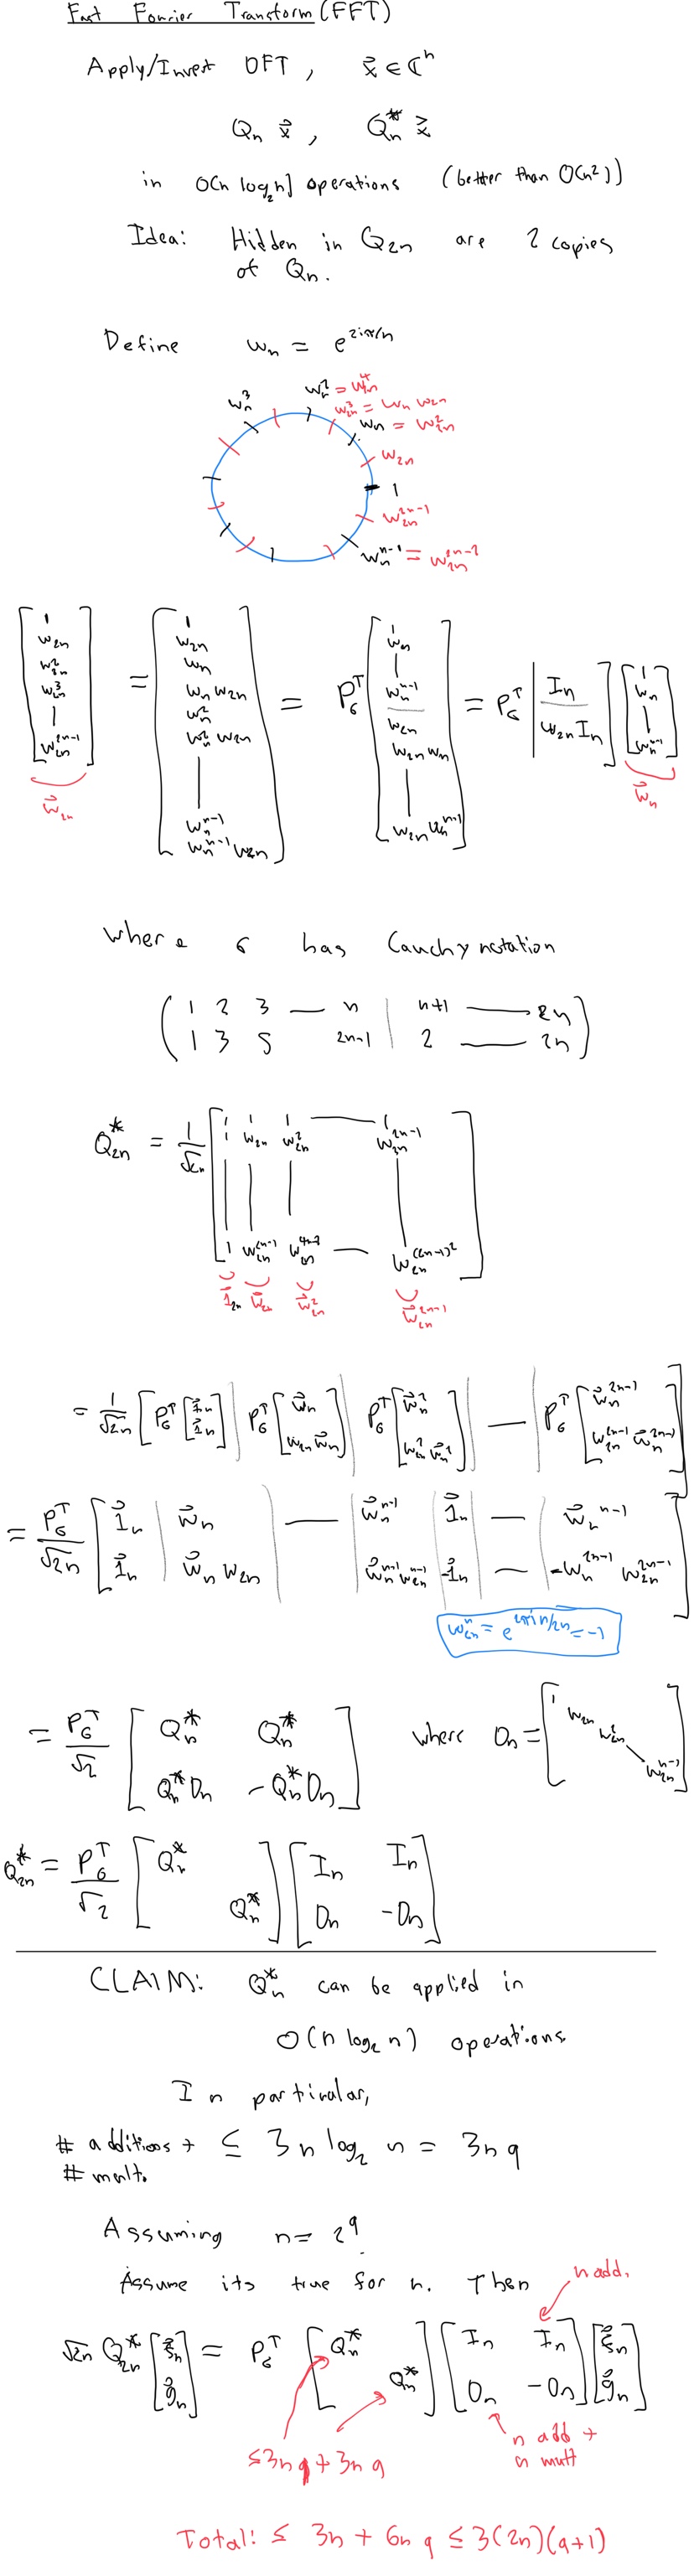 Fast Fourier Transform (FFT)
Apply/Invert DFT, x⃗ ∈ ℂⁿ
Qₙ x⃗, Qₙ* x⃗
in O(n log₂n) operations (better than O(n²))
Idea: Hidden in Q₂ₙ are 2 copies
of Qₙ.
Define wₙ = e^{2iπ/n}
wₙ³ wₙ² = w₂ₙ⁴
w₂ₙ³ = wₙ w₂ₙ
wₙ = w₂ₙ²
w₂ₙ
1
w₂ₙ^{2n-1}
wₙ^{n-1} = w₂ₙ^{2n-2}
[1 w₂ₙ w₂ₙ² w₂ₙ³ | w₂ₙ^{2n-1}] = [1 w₂ₙ wₙ wₙw₂ₙ wₙ² wₙ²w₂ₙ | wₙ^{n-1} wₙ^{n-1}w₂ₙ] = P_σ^T [1 wₙ | wₙ^{n-1} w₂ₙ w₂ₙwₙ | w₂ₙwₙ^{n-1}] = P_σ^T [Iₙ w₂ₙIₙ] [1 wₙ | wₙ^{n-1}]
w⃗₂ₙ w⃗ₙ
where σ has Cauchy notation
( 1 2 3 — n | n+1 — 2n
1 3 5 2n-1 | 2 — 2n )
Q₂ₙ* = 1/√2n [1 1 1 — 1
1 w₂ₙ w₂ₙ² w₂ₙ^{2n-1}
1 w₂ₙ^{2n-1} w₂ₙ^{4n-2} — w₂ₙ^{(2n-1)²}]
1⃗₂ₙ w⃗₂ₙ w⃗₂ₙ² w⃗₂ₙ^{2n-1}
= 1/√2n [P_σ^T [1⃗ₙ 1⃗ₙ] | P_σ^T [w⃗ₙ w₂ₙw⃗ₙ] | P_σ^T [w⃗ₙ² w₂ₙ²w⃗ₙ²] | — | P_σ^T [w⃗ₙ^{2n-1} w₂ₙ^{2n-1}w⃗ₙ^{2n-1}]]
= P_σ^T/√2n [1⃗ₙ | w⃗ₙ | — | w⃗ₙ^{n-1} | 1⃗ₙ | — | w⃗ₙ^{n-1}
1⃗ₙ | w⃗ₙw₂ₙ | | w⃗ₙ^{n-1}w₂ₙ^{n-1} | -1⃗ₙ | — | -wₙ^{2n-1} w₂ₙ^{2n-1}]
w₂ₙⁿ = e^{2πin/2n} = -1
= P_σ^T/√2 [Qₙ* Qₙ*
Qₙ*Dₙ -Qₙ*Dₙ] where Dₙ = [1 w₂ₙ w₂ₙ² w₂ₙ^{n-1}]
Q₂ₙ* = P_σ^T/√2 [Qₙ* Qₙ*] [Iₙ Iₙ
Dₙ -Dₙ]
CLAIM: Qₙ* can be applied in
O(n log₂ n) operations
In particular,
# additions + ≤ 3n log₂ n = 3nq
# mult.
Assuming n = 2^q
Assume its true for n. Then
n add.
√2n Q₂ₙ* [ξ⃗ₙ g⃗ₙ] = P_σ^T [Qₙ* Qₙ*] [Iₙ Iₙ
Dₙ -Dₙ] [ξ⃗ₙ g⃗ₙ]
≤3nq + 3nq
n add +
n mult
Total: ≤ 3n + 6nq ≤ 3(2n)(q+1)